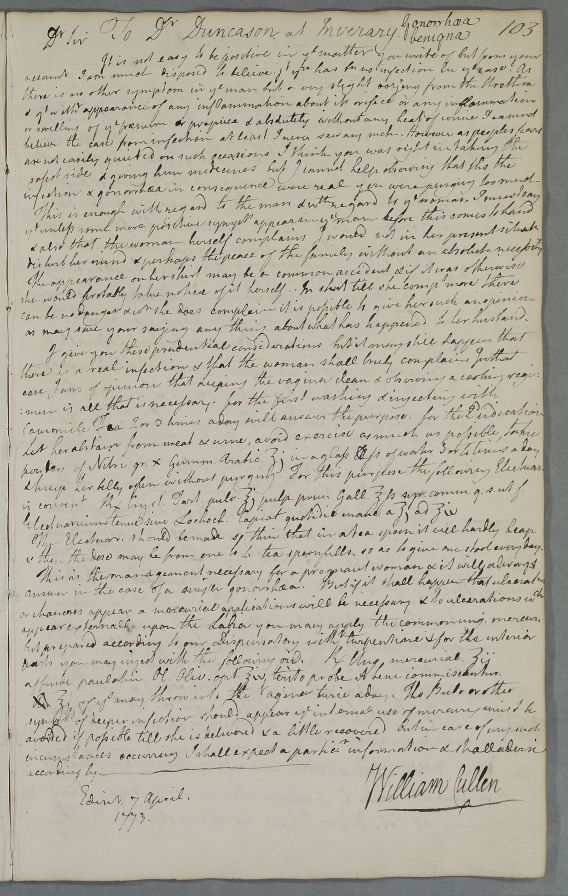 To Dr Duncason at Inverary. Gonorrhœa benigna 103
Dr Sir
It is not easy to be positive in ye matter you write of but from your
account I am much disposd to believe yt yr has been no infection in ye case. As
there is no other symptom in ye man but a very slight oozing from the Urethra
& yt without appearance of any inflammation about its orifice or any inflammation
or swelling of ye prænum or prepuce & absolutely without any heat of urine I cannot
believe the case from infection at least I never saw any such. However as peoples fears
are not easily quieted on such occasions I think you was right in taking the
safest side & giving him medicines but I cannot help observing that tho the
infection & gonorrhœa in consequence were real you were purging too much
This is enough with regard to the man & with regard to ye woman. I must say
yt unless some more positive sympt appear in ye man before this comes to hand
& also that the woman herself complains I would not in her present situat
disturb her mind & perhaps the peace of the family without an absolute necessity
The appearance on her shirt may be a common accident & if it was otherwise
she would probably take notice of it herself. In short till she comp more there
can be no danger & when she does complain it is possible to give her such an opinion
as may save your saying any thing about what has happened to her husband.
I give you these prudential considerations but it may still happen that
there is a real infection & that the woman shall truly complain. In that
case I am of opinion that keeping the vagina clean & observing a cooling regi-
men is all that is necessary. for the first washing & injecting with
Camomile Tea 2 or 3 times a day will answer the purpose. for the 2d indication
let her abstain from meat & wine, avoid exercise as much as possible, take
powders of Nitre gr. x Gumm Arabic Ʒj in a glass of water 3 or 4 times a day
& keep her belly open without purging. For this purpose the following Electuar.
is convent. ℞ Cryst. Tart. pulv. pulp prun. Gall. syr. comm. q.s. ut f.
Electuarium tenue sive Lochoch. Capiat quotidie mane a ad
The Electuar. should be made so thin that in a tea spoon it will hardly heap
& then the dose may be from one to 4 tea spoonfulls, so as to give one stool every day.
This is the management necessary for a pregnant woman & it will always
answer in the case of a simple gonorrhœa. But if it shall happen that ulcerations
or chancres appear a mercurial applications will be necessary & to ulcerations wch
appear externally upon the Labia you may apply the common ung. mercur.
but prepared according to our Dispensatory with turpentine & for the interior
parts you may inject with the following oil. ℞ Ung. mercurial. Ʒij
affunde paulatim Ol. Oliv. opt. tento probe & bene commisceantur.
of ys may throw into the vagina twice a day. The Bubo or other
sympts of deeper infection should appear ye internal use of mercury must be
avoided if possible till she is delivered & a little recovered but in case of any such
circumstances occurring I shall expect a particr information & shall advise
accordingly
William Cullen
Edinr. 7 April.
1773.